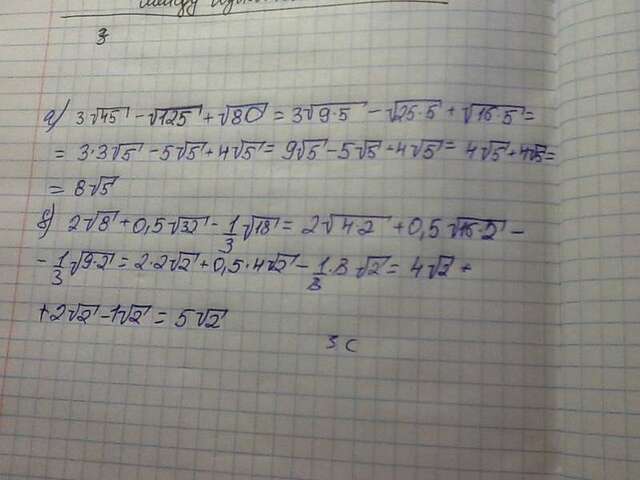 3
а) 3√45 - √125 + √80 = 3√9·5 - √25·5 + √16·5 =
= 3·3√5 - 5√5 + 4√5 = 9√5 - 5√5 - 4√5 = 4√5 + 4√5 =
= 8√5
б) 2√8 + 0,5√32 - 1/3√18 = 2√4·2 + 0,5√16·2 -
- 1/3√9·2 = 2·2√2 + 0,5·4√2 - 1/3·3√2 = 4√2 +
+ 2√2 - 1√2 = 5√2
3 С